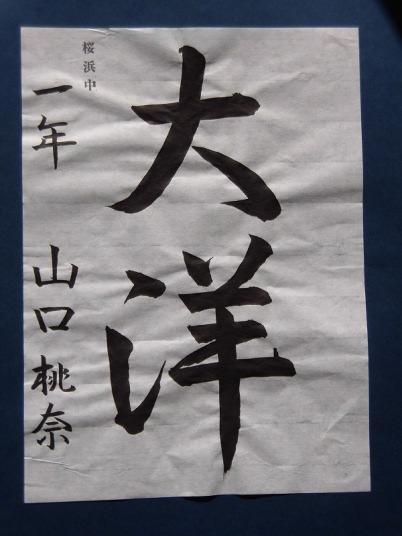 大洋
桜浜中
一年 山口桃奈